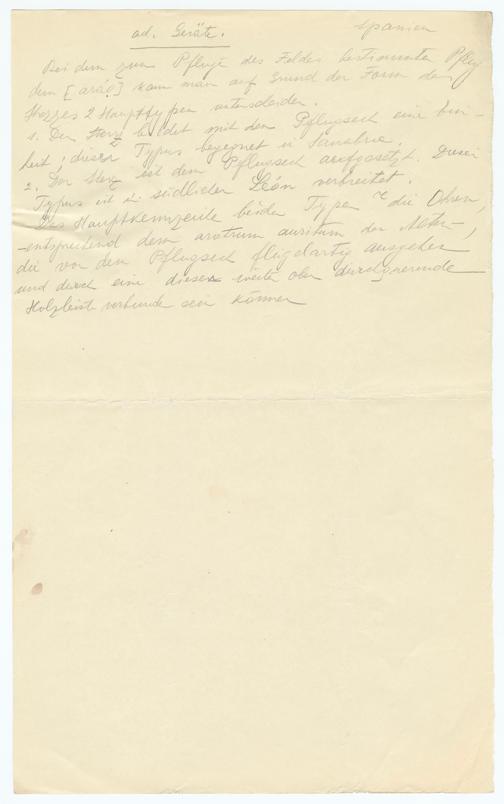 ad. Geräte.
Spanien
Bei dem zum Pfluge des Feldes bestimmten Pflug
dem [aráo] kann man auf Grund der Form des
Sterzes 2 Haupttypen unterscheiden.
1. Der Sterz bildet mit dem Pflugsech eine Ein-
heit; dieser Typus begegnet in Sanabria,
2. Der Sterz ist dem Pflugsech aufgesetzt. Dieser
Typus ist i. südlichen León verbreitet.
Das Hauptkennzeichen beider Typen die Ohren,
-entsprechend dem aratrum auritum der
die von dem Pflugsech flügelartig ausgehen
und durch eine diese oben durchquerende
Holzleiste verbunden sein können